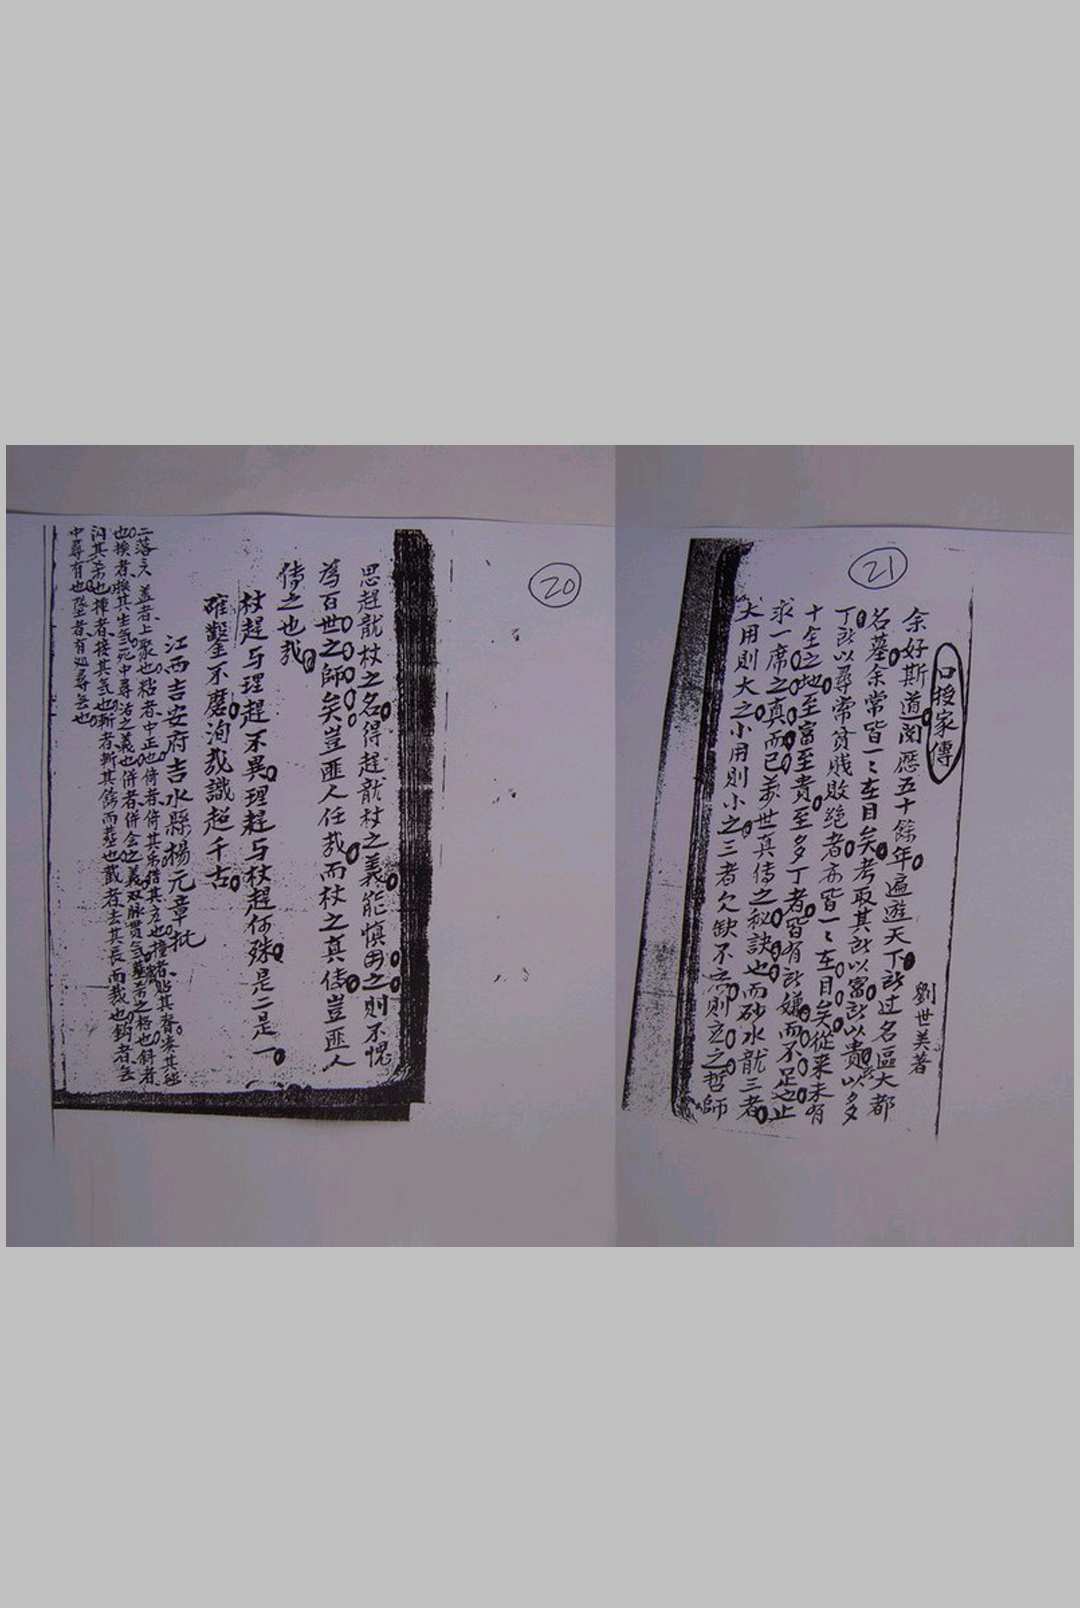 20
思趕龍杖之名得趕龍杖之義能慎毋之則不愧
為百世之師矣豈匪人任哉而杖之真傳豈匪人
傳之也哉
杖趕与理趕不異理趕与杖趕何殊是二是一
確鑿不磨洵哉識超千古
江西吉安府吉水縣楊元章批
蓋者上聚也粘者中正也倚者倚其
也換者換其生氣死中尋活之義也併者併合之義双脉貫氣
也揰者接其氣也斬者斬其 而葬也截者去其長而裁也
中尋有也墜者有 尋 也
21
口授家傳
劉世美著
余好斯道閱歷五十餘年遍遊天下所过名區大都
名墓余常皆一一在目矣考取其所以富所以貴以多
丁所以尋常貧賤敗絕者亦皆一一在目矣從来未有
十全之地至富至貴至多丁者皆有所嫌而不足也止
求一席之真而已万世真傳之秘訣也而砂水龍三者
大用則大之小用則小之三者欠缺不 則 之哲師